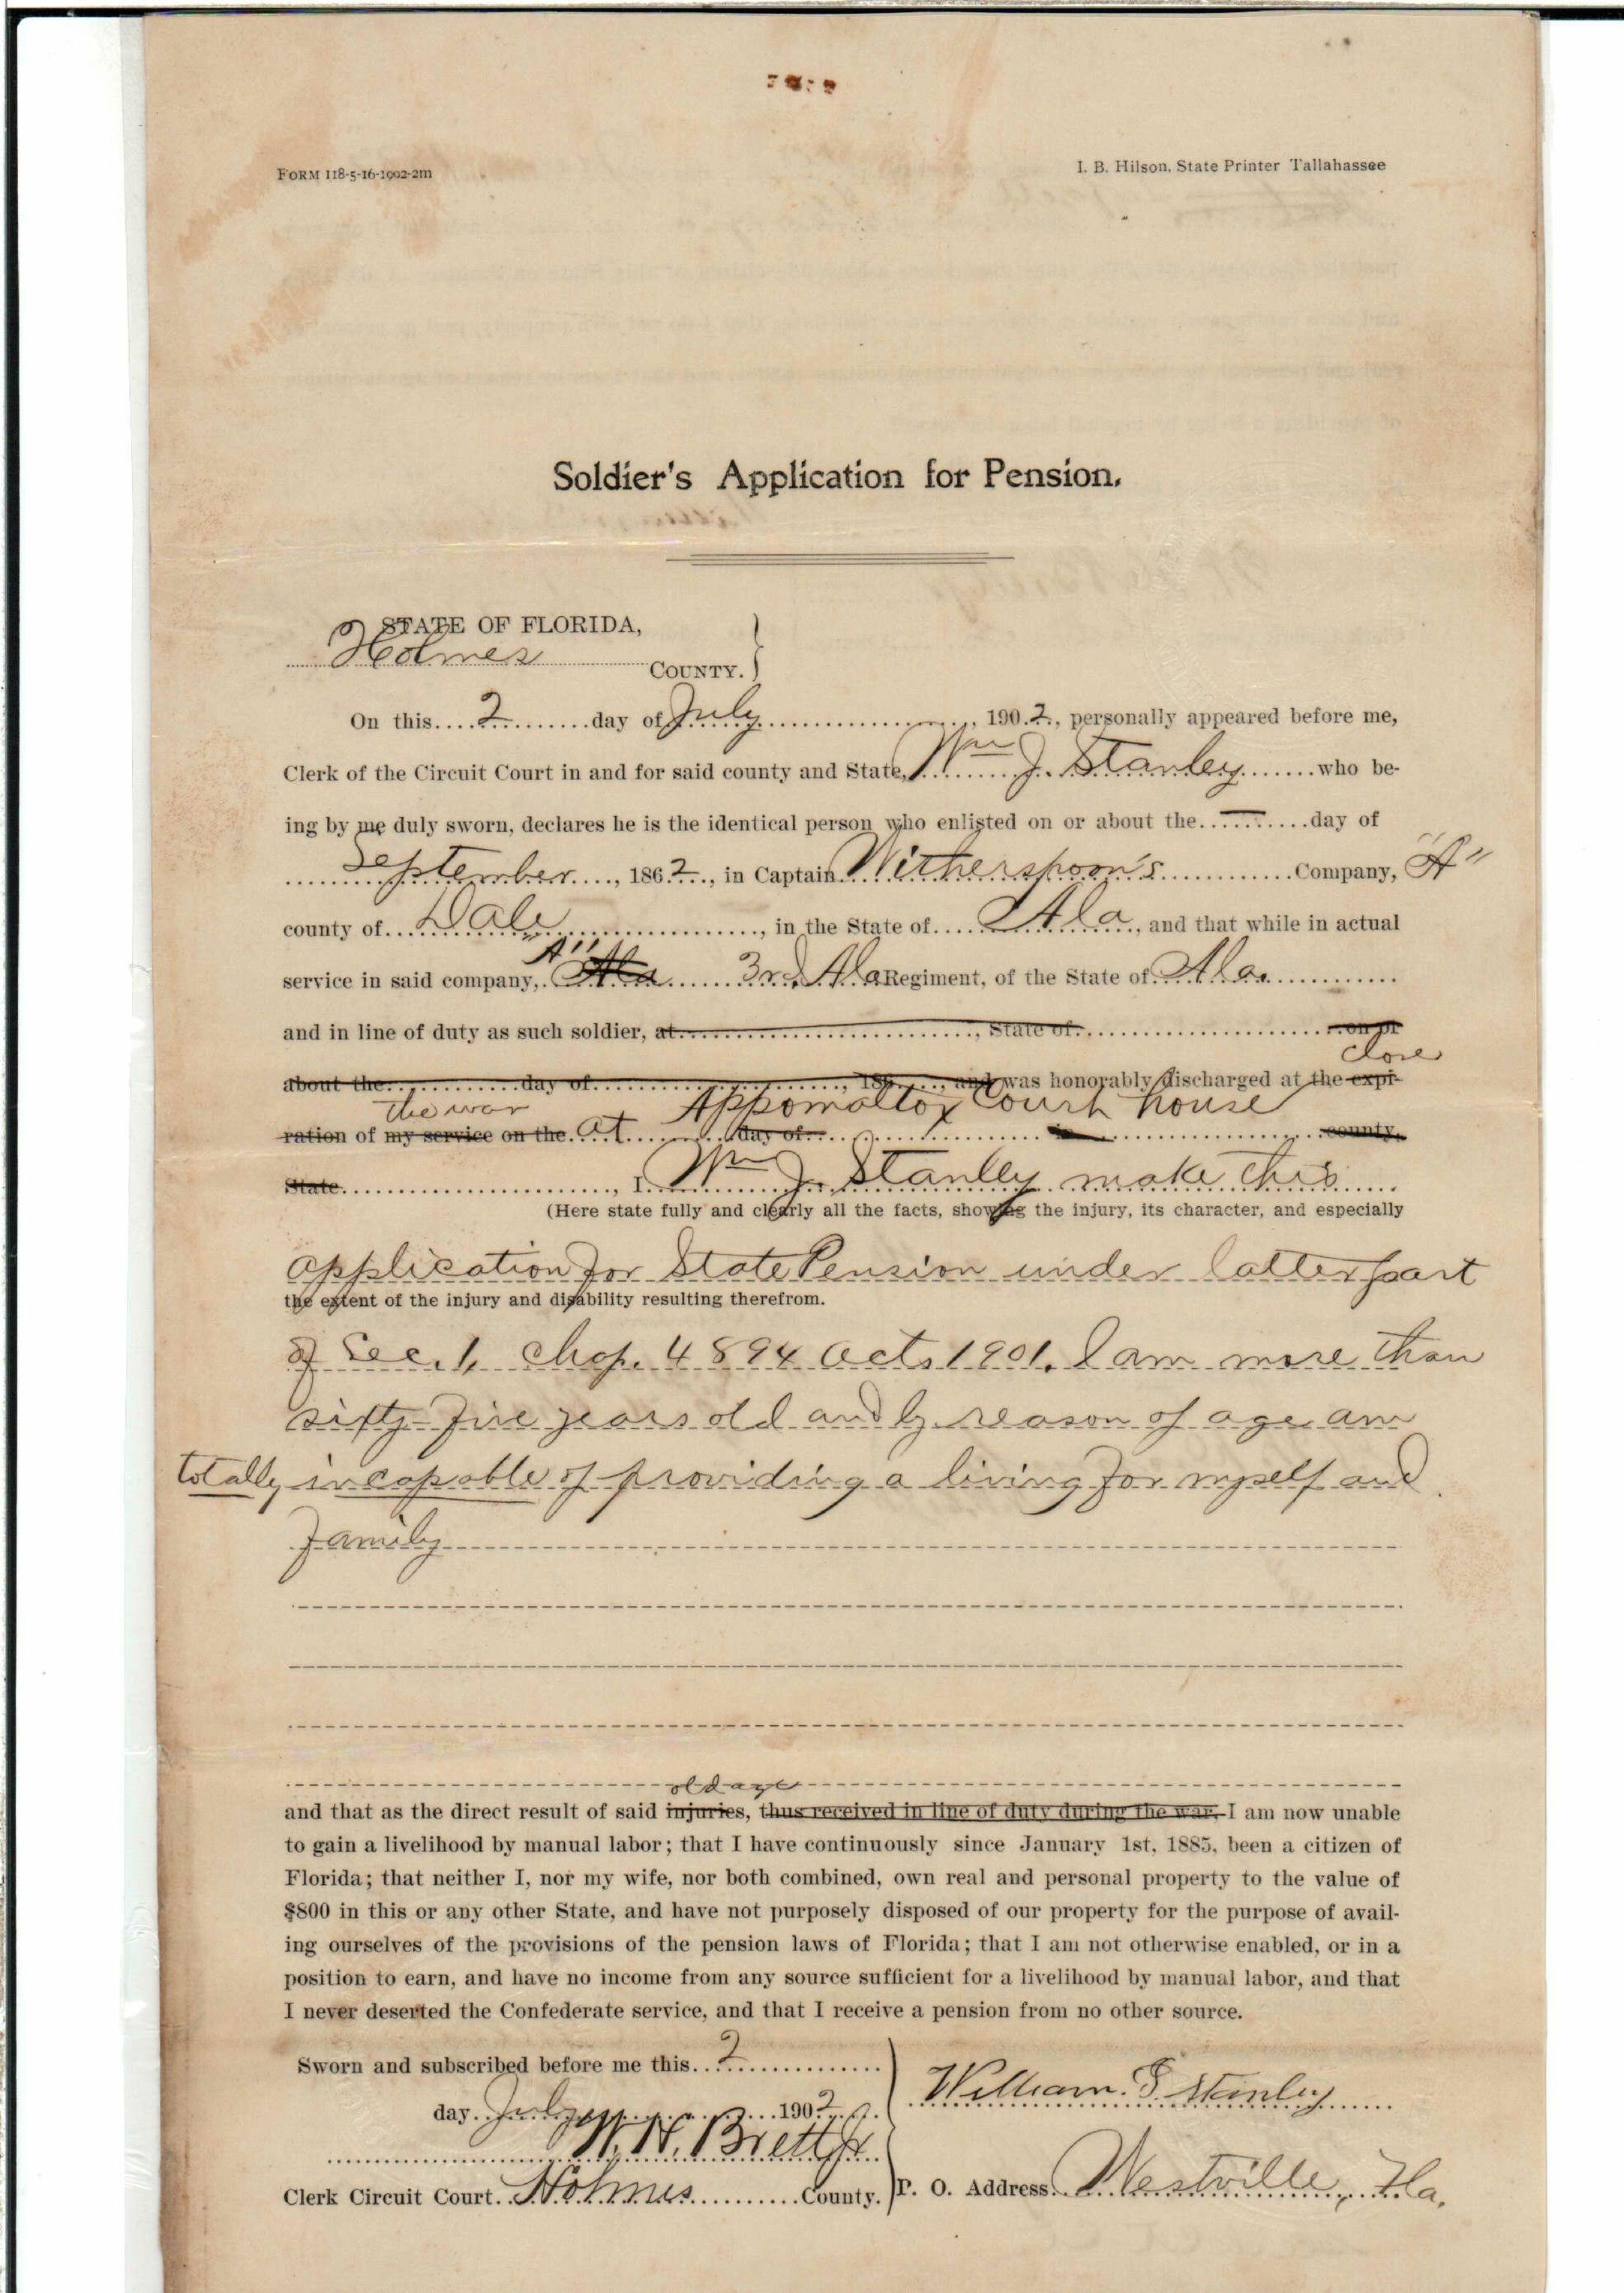 FORM 118-5-16-1902-2m
I. B. Hilson, State Printer Tallahassee
Soldier's Application for Pension.
STATE OF FLORIDA,
Holmes COUNTY.
On this 2 day of July, 1902, personally appeared before me,
Clerk of the Circuit Court in and for said county and State, Wm J. Stanley who be-
ing by me duly sworn, declares he is the identical person who enlisted on or about the — day of
September, 1862, in Captain Witherspoon's Company, "A"
county of Dale, in the State of Ala, and that while in actual
"A"
service in said company, Ala 3rd Ala Regiment, of the State of Ala.
and in line of duty as such soldier, at, State of on or
close
about the day of, 186, and was honorably discharged at the expi-
the war Appomattox Court house
ration of my service on the at day of in county,
State, I Wm J. Stanley make this
(Here state fully and clearly all the facts, showing the injury, its character, and especially
application for State Pension under latter part
the extent of the injury and disability resulting therefrom.
of Sec. 1, Chap. 4894 Acts 1901. I am more than
sixty-five years old and by reason of age am
totally incapable of providing a living for myself and
family
old age
and that as the direct result of said injuries, thus received in line of duty during the war, I am now unable
to gain a livelihood by manual labor; that I have continuously since January 1st, 1885, been a citizen of
Florida; that neither I, nor my wife, nor both combined, own real and personal property to the value of
$800 in this or any other State, and have not purposely disposed of our property for the purpose of avail-
ing ourselves of the provisions of the pension laws of Florida; that I am not otherwise enabled, or in a
position to earn, and have no income from any source sufficient for a livelihood by manual labor, and that
I never deserted the Confederate service, and that I receive a pension from no other source.
Sworn and subscribed before me this 2
day July 1902
William. J. Stanley
W. H. Brett Jr
Clerk Circuit Court. Holmes County.
P. O. Address. Westville, Fla.